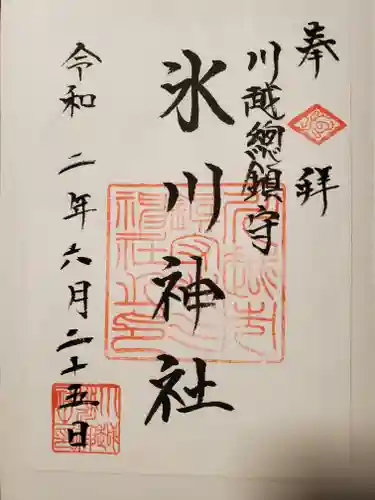 奉拜
川越總鎮守
氷川神社
令和二年六月二十五日